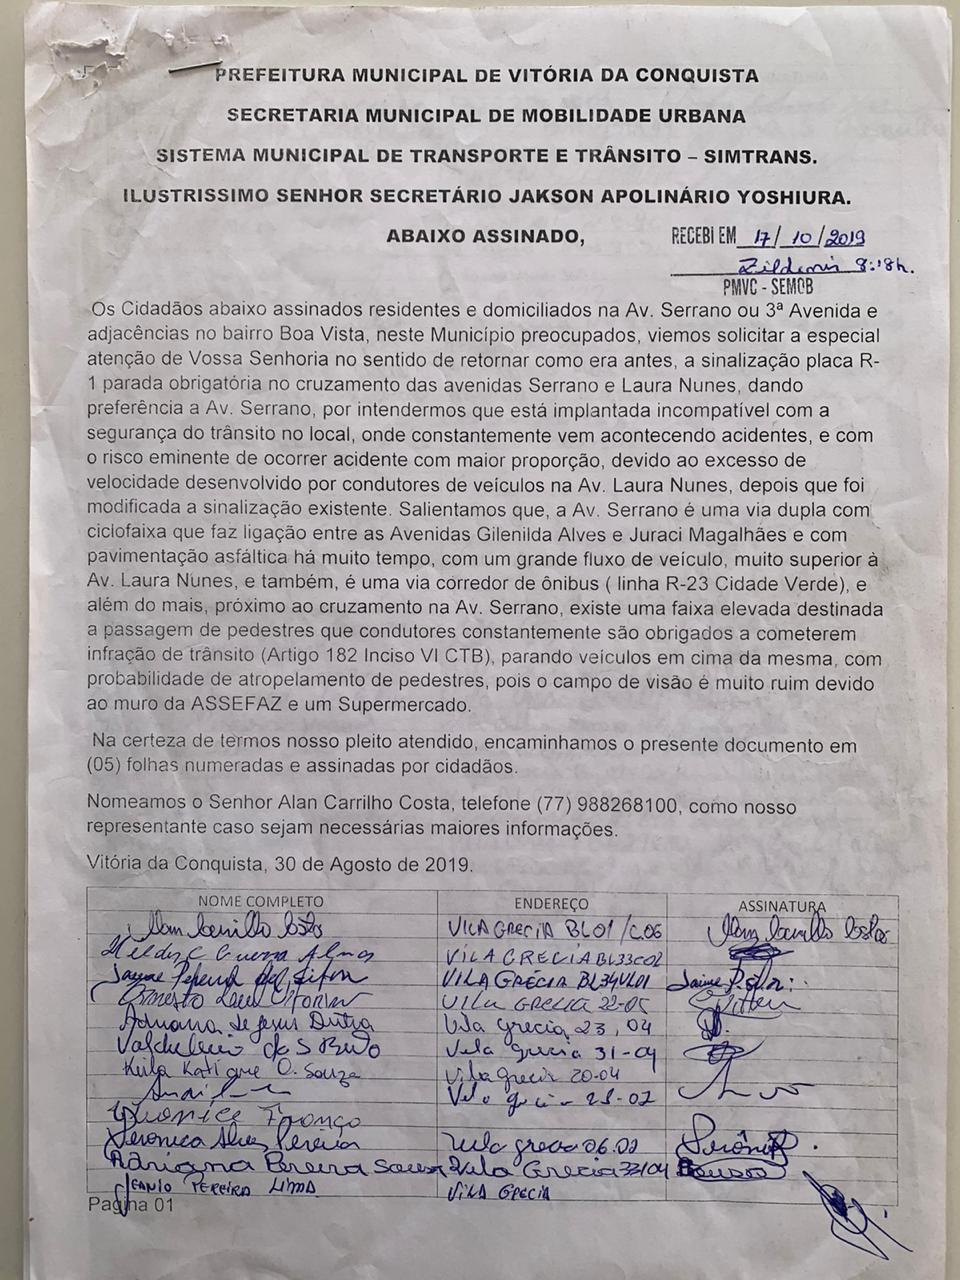 PREFEITURA MUNICIPAL DE VITÓRIA DA CONQUISTA
SECRETARIA MUNICIPAL DE MOBILIDADE URBANA
SISTEMA MUNICIPAL DE TRANSPORTE E TRÂNSITO – SIMTRANS.
ILUSTRISSIMO SENHOR SECRETÁRIO JAKSON APOLINÁRIO YOSHIURA.
ABAIXO ASSINADO,
RECEBI EM 17/10/2019
8:18h.
PMVC - SEMOB
Os Cidadãos abaixo assinados residentes e domiciliados na Av. Serrano ou 3ª Avenida e
adjacências no bairro Boa Vista, neste Município preocupados, viemos solicitar a especial
atenção de Vossa Senhoria no sentido de retornar como era antes, a sinalização placa R-
1 parada obrigatória no cruzamento das avenidas Serrano e Laura Nunes, dando
preferência a Av. Serrano, por intendermos que está implantada incompatível com a
segurança do trânsito no local, onde constantemente vem acontecendo acidentes, e com
o risco eminente de ocorrer acidente com maior proporção, devido ao excesso de
velocidade desenvolvido por condutores de veículos na Av. Laura Nunes, depois que foi
modificada a sinalização existente. Salientamos que, a Av. Serrano é uma via dupla com
ciclofaixa que faz ligação entre as Avenidas Gilenilda Alves e Juraci Magalhães e com
pavimentação asfáltica há muito tempo, com um grande fluxo de veículo, muito superior à
Av. Laura Nunes, e também, é uma via corredor de ônibus ( linha R-23 Cidade Verde), e
além do mais, próximo ao cruzamento na Av. Serrano, existe uma faixa elevada destinada
a passagem de pedestres que condutores constantemente são obrigados a cometerem
infração de trânsito (Artigo 182 Inciso VI CTB), parando veículos em cima da mesma, com
probabilidade de atropelamento de pedestres, pois o campo de visão é muito ruim devido
ao muro da ASSEFAZ e um Supermercado.
Na certeza de termos nosso pleito atendido, encaminhamos o presente documento em
(05) folhas numeradas e assinadas por cidadãos.
Nomeamos o Senhor Alan Carrilho Costa, telefone (77) 988268100, como nosso
representante caso sejam necessárias maiores informações.
Vitória da Conquista, 30 de Agosto de 2019.
NOME COMPLETO ENDEREÇO ASSINATURA
Alan Carrilho Costa VILA GRECIA BL01/C06 Alan Carrilho Costa
VILA GRECIA BL33C02
Jayme VILA GRÉCIA BL34VL01 Jaime
Ernesto VILA GRECIA 22-05
Adriana de Jesus Dutra Vila Grecia 23,04
Vila grecia 31-04
Keila Katiane O. Souza Vila grecia 20-04
Vila grecia
Franco
Veronica Alves Pereira Vila grecia 06.02
Adriana Pereira Sousa Vila Grecia 33/04
JEANIO PEREIRA LIMA VILA GRECIA
Pagina 01